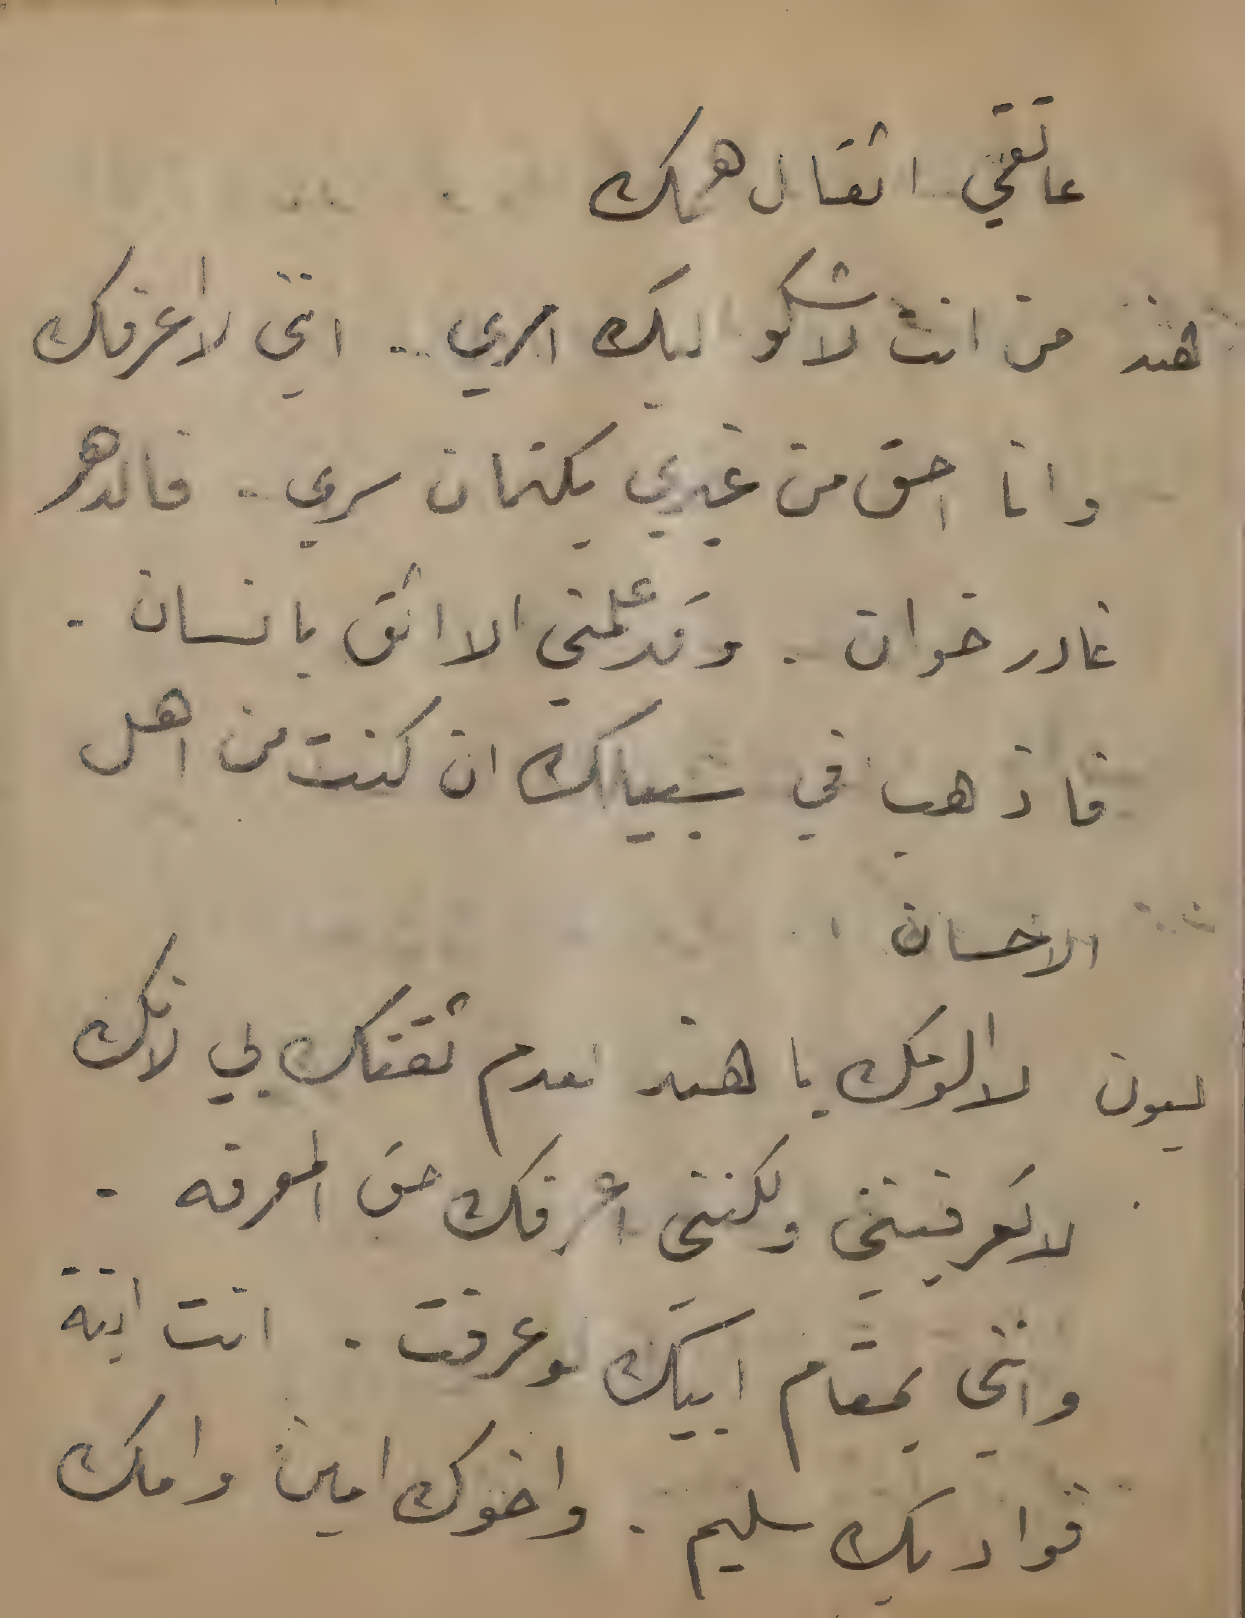 عاتقي اثقال همك
هند من انت لاشكو ليك امري . انني لا اعرفك
وانا احق من غيري بكتمان سري . فالدهر
غادر خوان . وقد علمني الا اثق بانسان .
فاذهب في سبيلك ان كنت من اهل
الاحسان .
ليون لا الومك يا هند لعدم ثقتك بي لانك
لا تعرفينني ولكنني اعرفك حق المعرفه .
وانني بمقام ابيك لو عرفت . انت ابنة
سليم . واخوك امين وامك